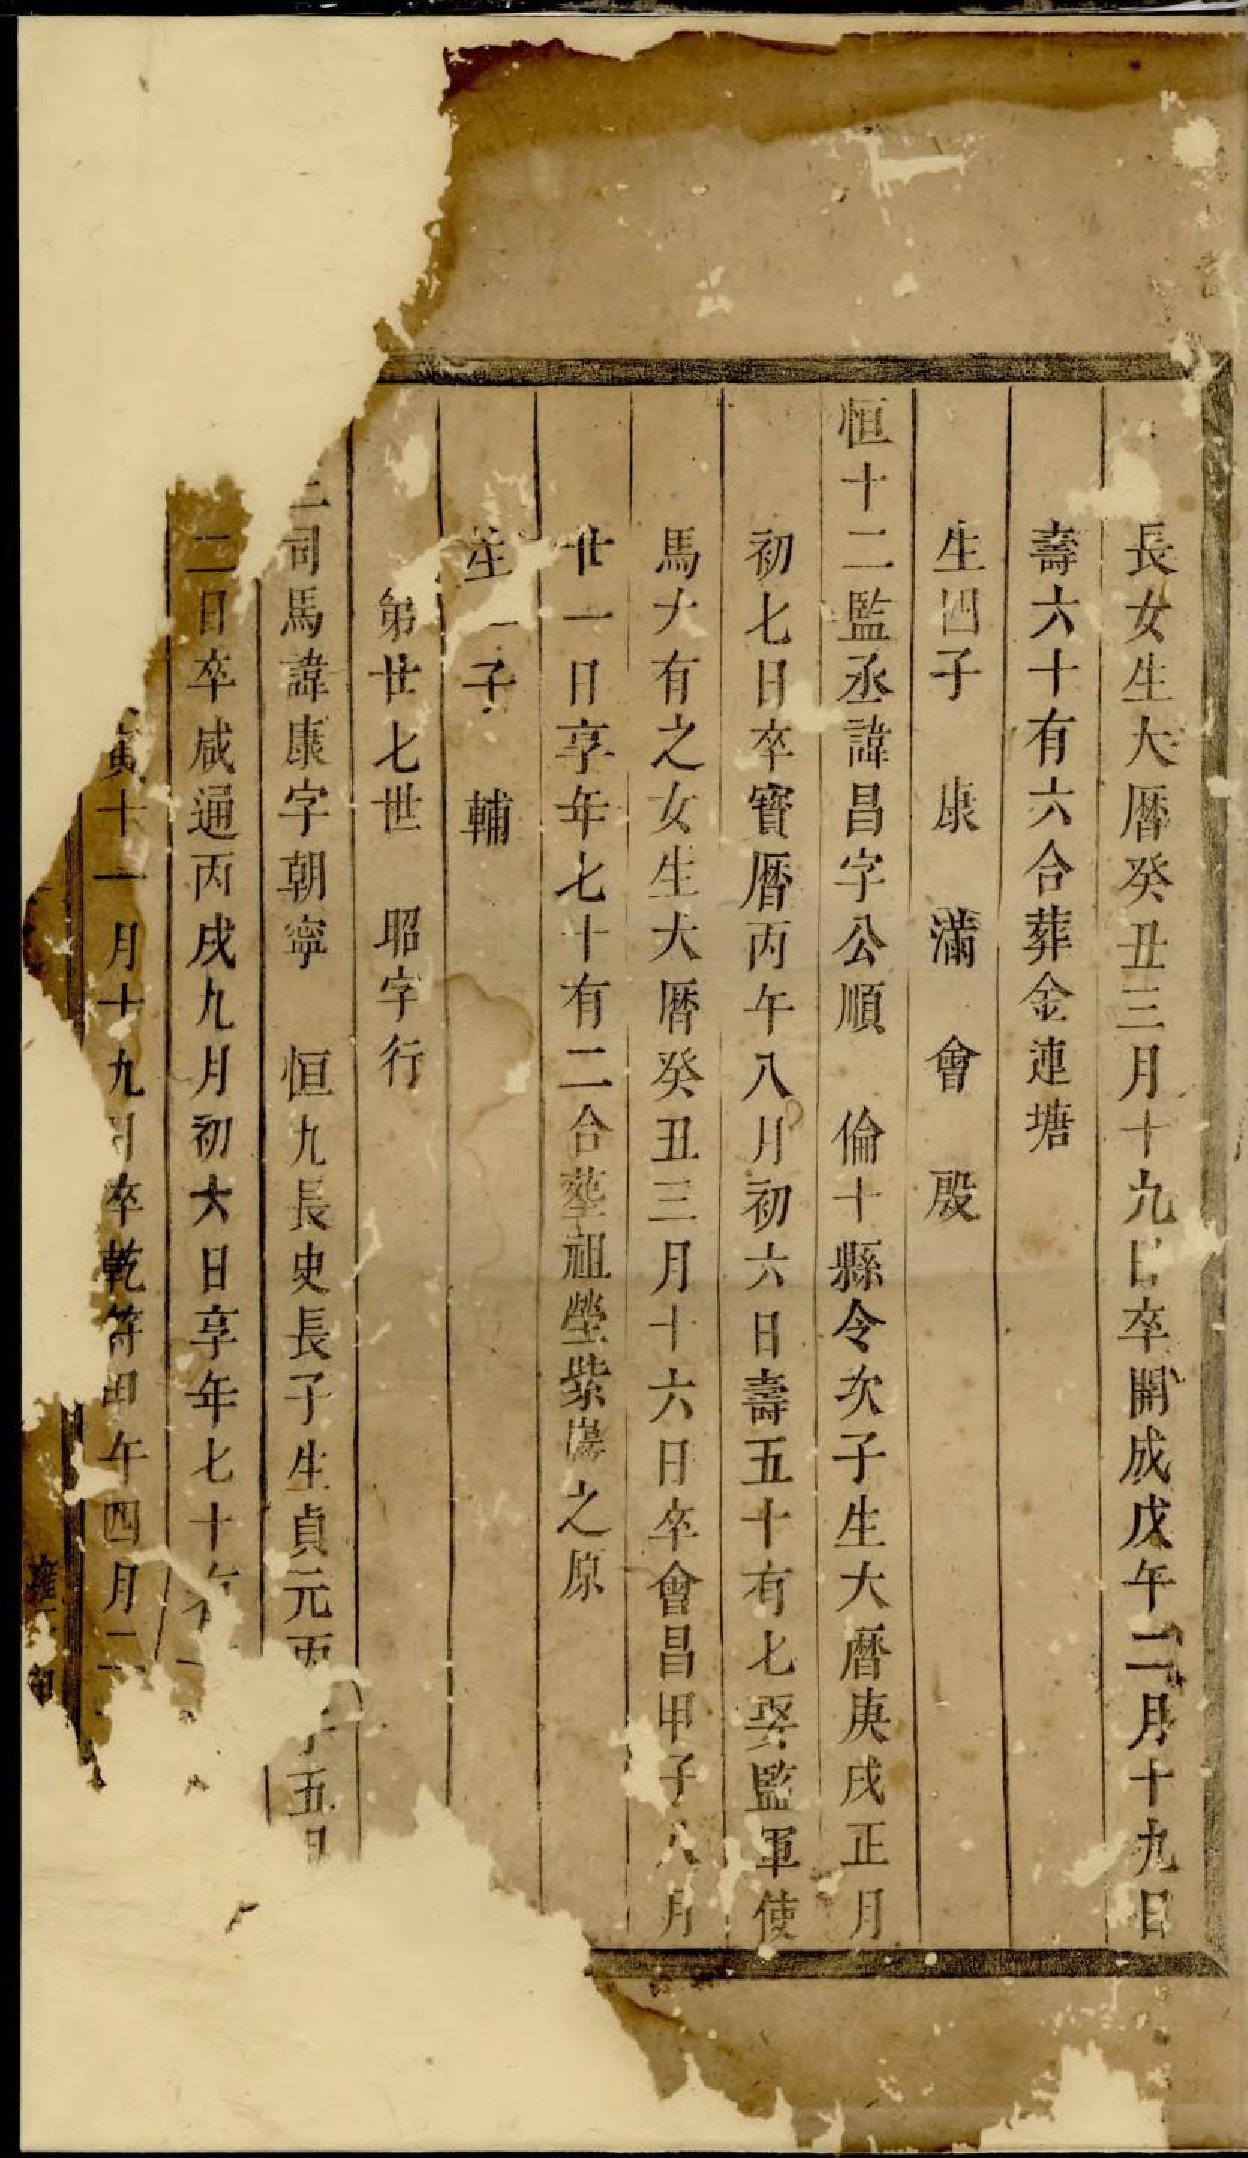 長女生大曆癸丑三月十九日卒開成戊午二月十九日
壽六十有六合葬金連塘
生四子　康　滿　會　殷
恒十二監丞諱昌字公順　倫十縣令次子生大曆庚戌正月
初七日卒寶曆丙午八月初六日壽五十有七娶監軍使
馬大有之女生大曆癸丑三月十六日卒會昌甲子八月
廿一日享年七十有二合塟祖塋紫陽之原
生一子　輔
第廿七世　昭字行
司馬諱康字朝寧　恒九長史長子生貞元丙子五月
二日卒咸通丙戌九月初六日享年七十有一
寅十一月十九日卒乾符甲午四月二